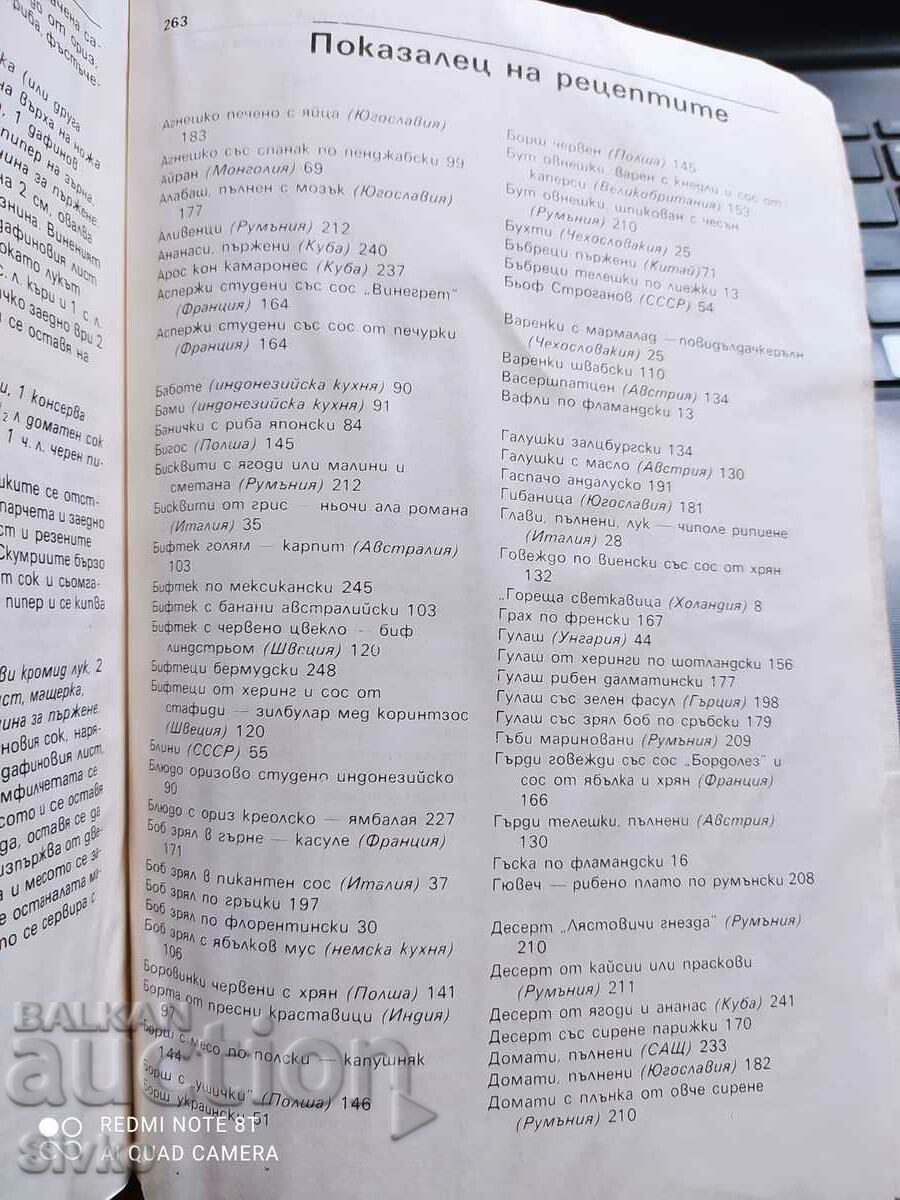 чена са-
до от ориз,
риба, фъстъче-
ка (или друга
на върха на ножа
1 дафинов
пипер на зърна,
нина за пържене
на 2 см, овалва
знина. Виненият
дафиновия лист
окато лукът
с. л. къри и 1 с. л.
чко заедно ври 2
и се оставя на
и, 1 консерва
л доматен сок
1 ч. л. черен пи-
иките се отст-
парчета и заедно
ст и резените
Скумриите бързо
т сок и сьомга-
пипер и се кипва
ви кромид лук, 2
ист, мащерка,
нина за пържене.
новия сок, наря-
дафиновия лист,
мфилчетата се
сото и се оставя
да, оставя се да
изпържва от две-
а и месото се за-
е останалата ма-
то се сервира с
263
Показалец на рецептите
Агнешко печено с яйца (Югославия)
183
Агнешко със спанак по пенджабски 99
Айран (Монголия) 69
Алабаш, пълнен с мозък (Югославия)
177
Аливенци (Румъния) 212
Ананаси, пържени (Куба) 240
Арос кон камаронес (Куба) 237
Аспержи студени със сос „Винегрет“
(Франция) 164
Аспержи студени със сос от печурки
(Франция) 164
Баботе (индонезийска кухня) 90
Бами (индонезийска кухня) 91
Банички с риба японски 84
Бигос (Полша) 145
Бисквити с ягоди или малини и
сметана (Румъния) 212
Бисквити от грис – ньочи ала романа
(Италия) 35
Бифтек голям — карпит (Австралия)
103
Бифтек по мексикански 245
Бифтек с банани австралийски 103
Бифтек с червено цвекло – биф
линдстрьом (Швеция) 120
Бифтеци бермудски 248
Бифтеци от херинг и сос от
стафиди — зилбулар мед коринтзос
(Швеция) 120
Блини (СССР) 55
Блюдо оризово студено индонезийско
90
Блюдо с ориз креолско — ямбалая 227
Боб зрял в гърне — касуле (Франция)
171
Боб зрял в пикантен сос (Италия) 37
Боб зрял по гръцки 197
Боб зрял по флорентински 30
Боб зрял с ябълков мус (немска кухня)
106
Боровинки червени с хрян (Полша) 141
Борта от пресни краставици (Индия)
97
Борш с месо по полски — капушняк
144
Борш с „ушички“ (Полша) 146
Борш украински 51
Борш червен (Полша) 145
Бут овнешки, варен с кнедли и сос от
каперси (Великобритания) 153
Бут овнешки, шпикован с чесън
(Румъния) 210
Бухти (Чехословакия) 25
Бъбреци пържени (Китай) 71
Бъбреци телешки по лиежки 13
Бьоф Строганов (СССР) 54
Варенки с мармалад — повидълдачкерълн
(Чехословакия) 25
Варенки швабски 110
Васершпатцен (Австрия) 134
Вафли по фламандски 13
Галушки залцбургски 134
Галушки с масло (Австрия) 130
Гаспачо андалуско 191
Гибаница (Югославия) 181
Глави, пълнени, лук — чиполе рипиене
(Италия) 28
Говеждо по виенски със сос от хрян
132
„Гореща светкавица (Холандия) 8
Грах по френски 167
Гулаш (Унгария) 44
Гулаш от херинги по шотландски 156
Гулаш рибен далматински 177
Гулаш със зелен фасул (Гърция) 198
Гулаш със зрял боб по сръбски 179
Гъби мариновани (Румъния) 209
Гърди говежди със сос „Бордолез“ и
сос от ябълка и хрян (Франция)
166
Гърди телешки, пълнени (Австрия)
130
Гъска по фламандски 16
Гювеч — рибено плато по румънски 208
Десерт „Лястовичи гнезда“ (Румъния)
210
Десерт от кайсии или праскови
(Румъния) 211
Десерт от ягоди и ананас (Куба) 241
Десерт със сирене парижки 170
Домати, пълнени (САЩ) 233
Домати, пълнени (Югославия) 182
Домати с плънка от овче сирене
(Румъния) 210
BALKAN
auction
REDMI NOTE 8T
AI QUAD CAMERA